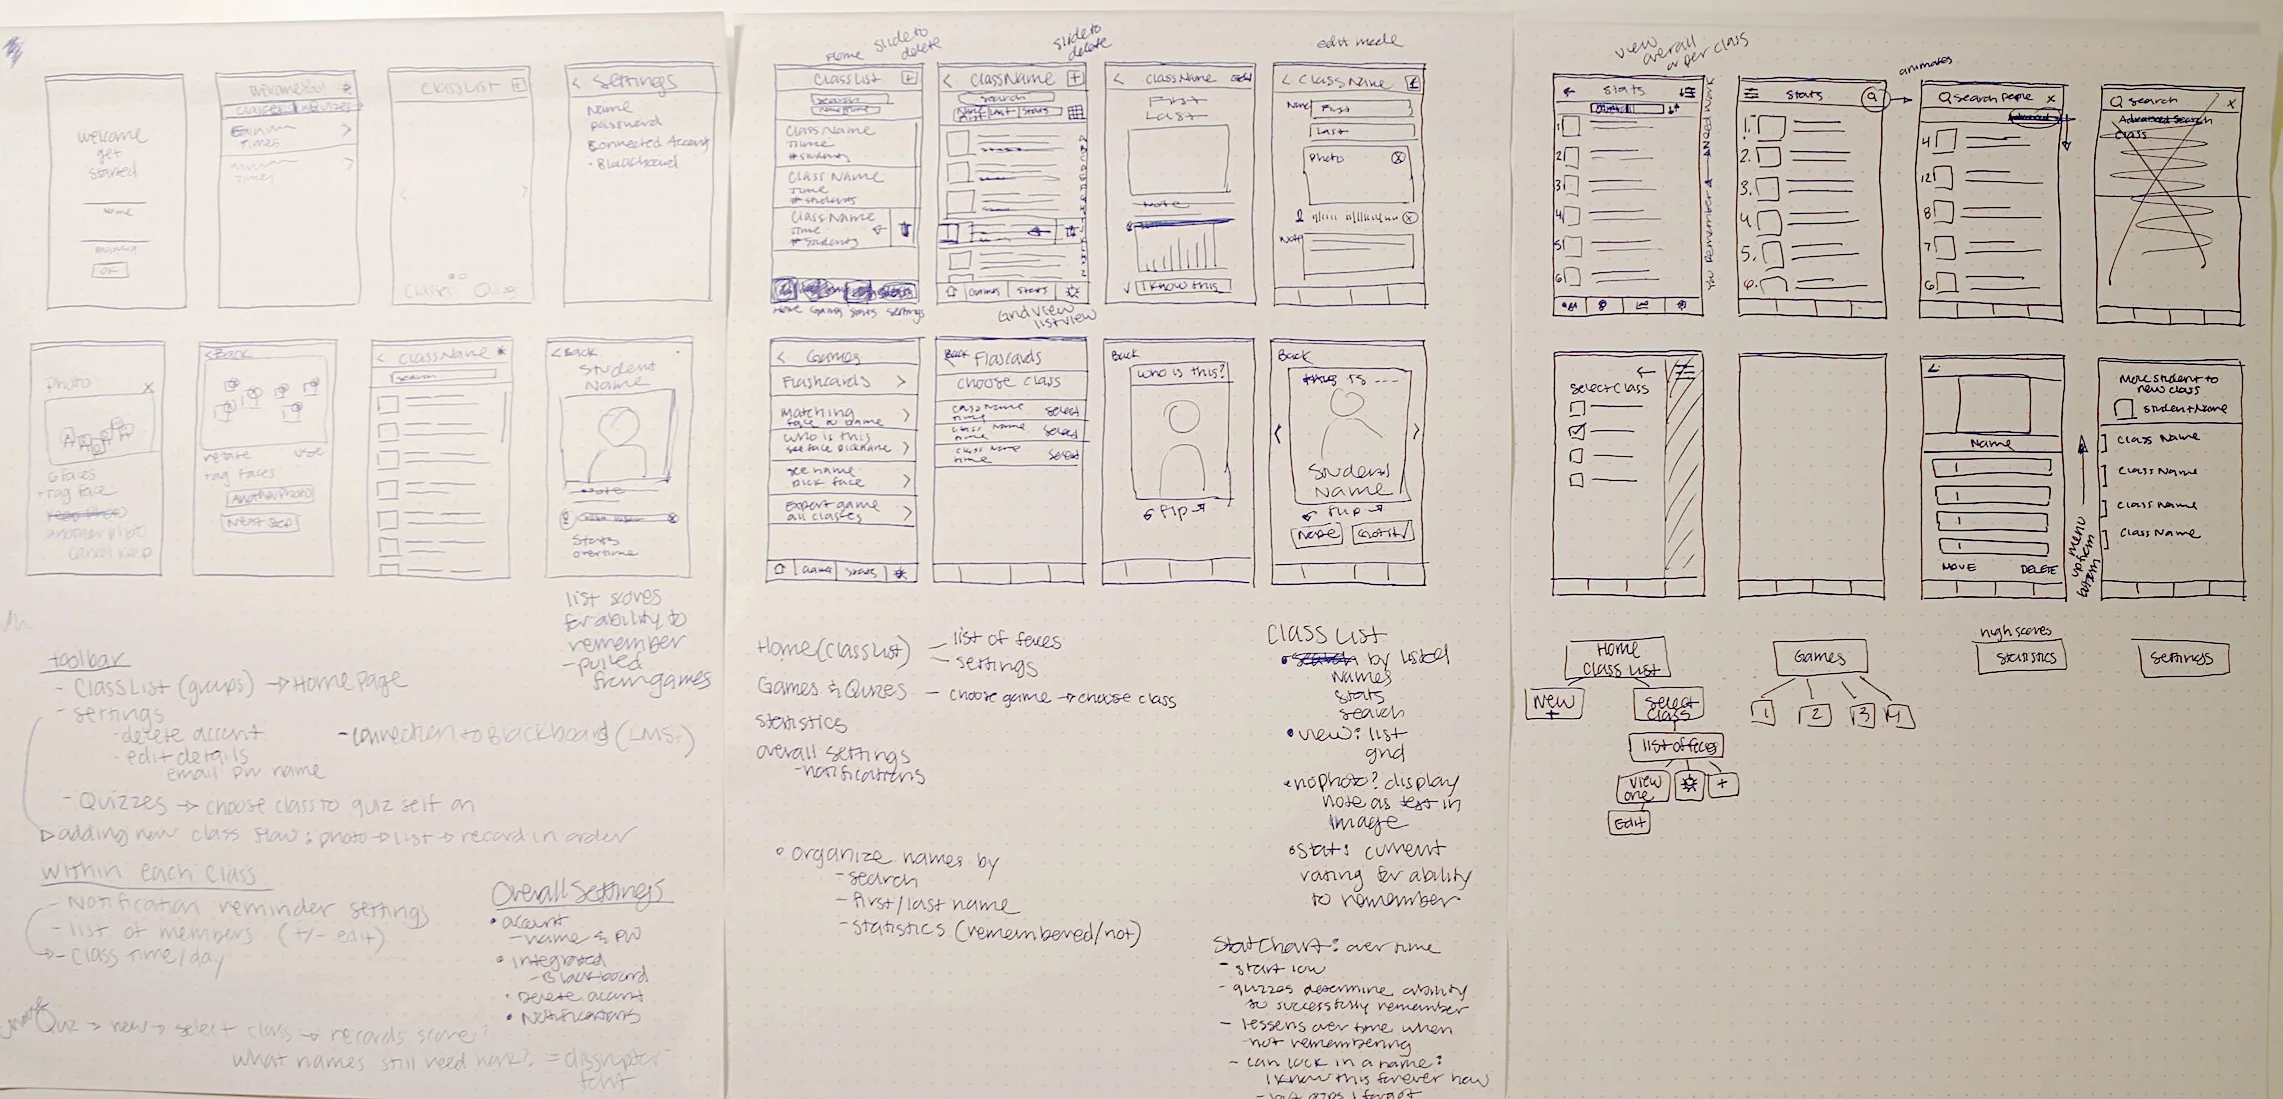 welcome
get
started
name
password
OK
Times
Class List +
Classes Quizzes
< Settings
Name
password
Connected Account
- Blackboard
Photo X
6 faces
+ tag face
another photo
cancel keep
< Back
retake use
tag faces
Another Photo
Next Step
< Class Name *
Search
< Back
Student
Name
Note
Stats
overtime
list scores
for ability to
remember
- pulled
from games
toolbar
- Class List (groups) → Home Page
- settings
- delete account
- edit details
email pw name
- connection to Blackboard (LMS)
- Quizzes → choose class to quiz self on
▷ adding new class flow: photo → list → record in order
Within each class
- Notification reminder settings
- list of members (+/- edit)
- Class Time/day
Overall Settings
• account
- name & PW
• integrated
- Blackboard
• Delete account
• Notifications
Quiz → new → select class → records score?
what names still need work? =
font
Home
slide to
delete
Class List +
Search
Class Name
Time
# Students
Class Name
Time
# Students
Class Name
Time
# Students
Home Games Stats Settings
slide to
delete
< Class Name +
Search
Name Last Stats
Games Stats
Grid view
list view
< Class Name Edit
First
Last
Note
✓ I know this
edit mode
< Class Name
Name First
Last
Photo X
Note
< Games
Flashcards >
Matching >
face to name
Who is this >
see face pick name
see name >
pick face
Expert game >
all classes
Games Stats
Back Flascards
Choose class
Class Name Select
time
Class Name Select
time
Class Name Select
time
Back
Who is this?
flip
Back
this is ----
< >
Student
Name
flip
Nope Got it ✓
Home (Class List) - list of faces
- settings
Games & Quizes - choose game → choose class
statistics
overall settings
- notifications
• organize names by
- search
- first/last name
- statistics (remembered/not)
Class List
• search by listed
names
stats
search
• view: list
grid
• no photo? display
note as text in
image
• Stat: current
rating for ability
to remember
Stat Chart: over time
- start low
- quizzes determine ability
to successfully remember
- lessens over time when
not remembering
- can lock in a name:
I know this forever now
view
overall
or per class
← Stats
Overall
1
2
3
4
5
6
You Remember ← → Need Work
Stats
1.
2.
3.
4.
5.
6.
animates
Search People X
Advanced
4
12
8
7
6
Search X
Advanced Search
Class
←
Select Class
Name
MOVE DELETE
menu
options
Move student to
new class
Student Name
Class Name
Class Name
Class Name
Class Name
Home
Class List
New
+
Select
Class
list of faces
View
one
+
Edit
Games
1 2 3 4
high scores
Statistics
Settings